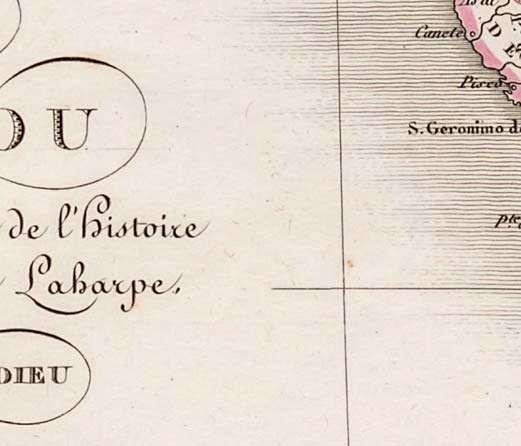 OU
de l'histoire
Laharpe.
DIEU
Canete
Pisco
S. Geronimo d
pte